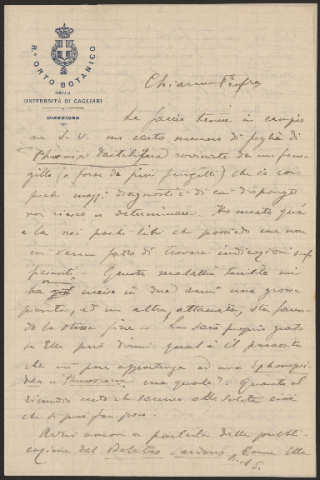 R° ORTO BOTANICO
DELLA
UNIVERSITÀ DI CAGLIARI
DIREZIONE
Chiarmo Profre
Le faccio tenere in campio
ne S. V. un certo numero di foglie di
Phoenix dactilifera rovinate da un fun
gillo (o forse da più fungilli) che io con
pochi mezzi diagnostici di cui dispongo
non riesco a determinare. Ho cercato già
la nei pochi libri che possiedo ma non
mi venne fatto di trovare indicazioni suf
ficienti. Questa malattia terribile mi
ha in due anni una grossa
pianta, ed un altra, attaccata, sta facen
do la stessa fine. Le sarò proprio grato
se Ella può dirmi qual è il parassita
che mi pare appartenga ad una Sphaeropsi
dea. una quale? Quanto al
rimedio certo che saremo alle solite cioè
che si può far poco.
Avrei ancora a parlarle della pubbli
cazione del Come Ella